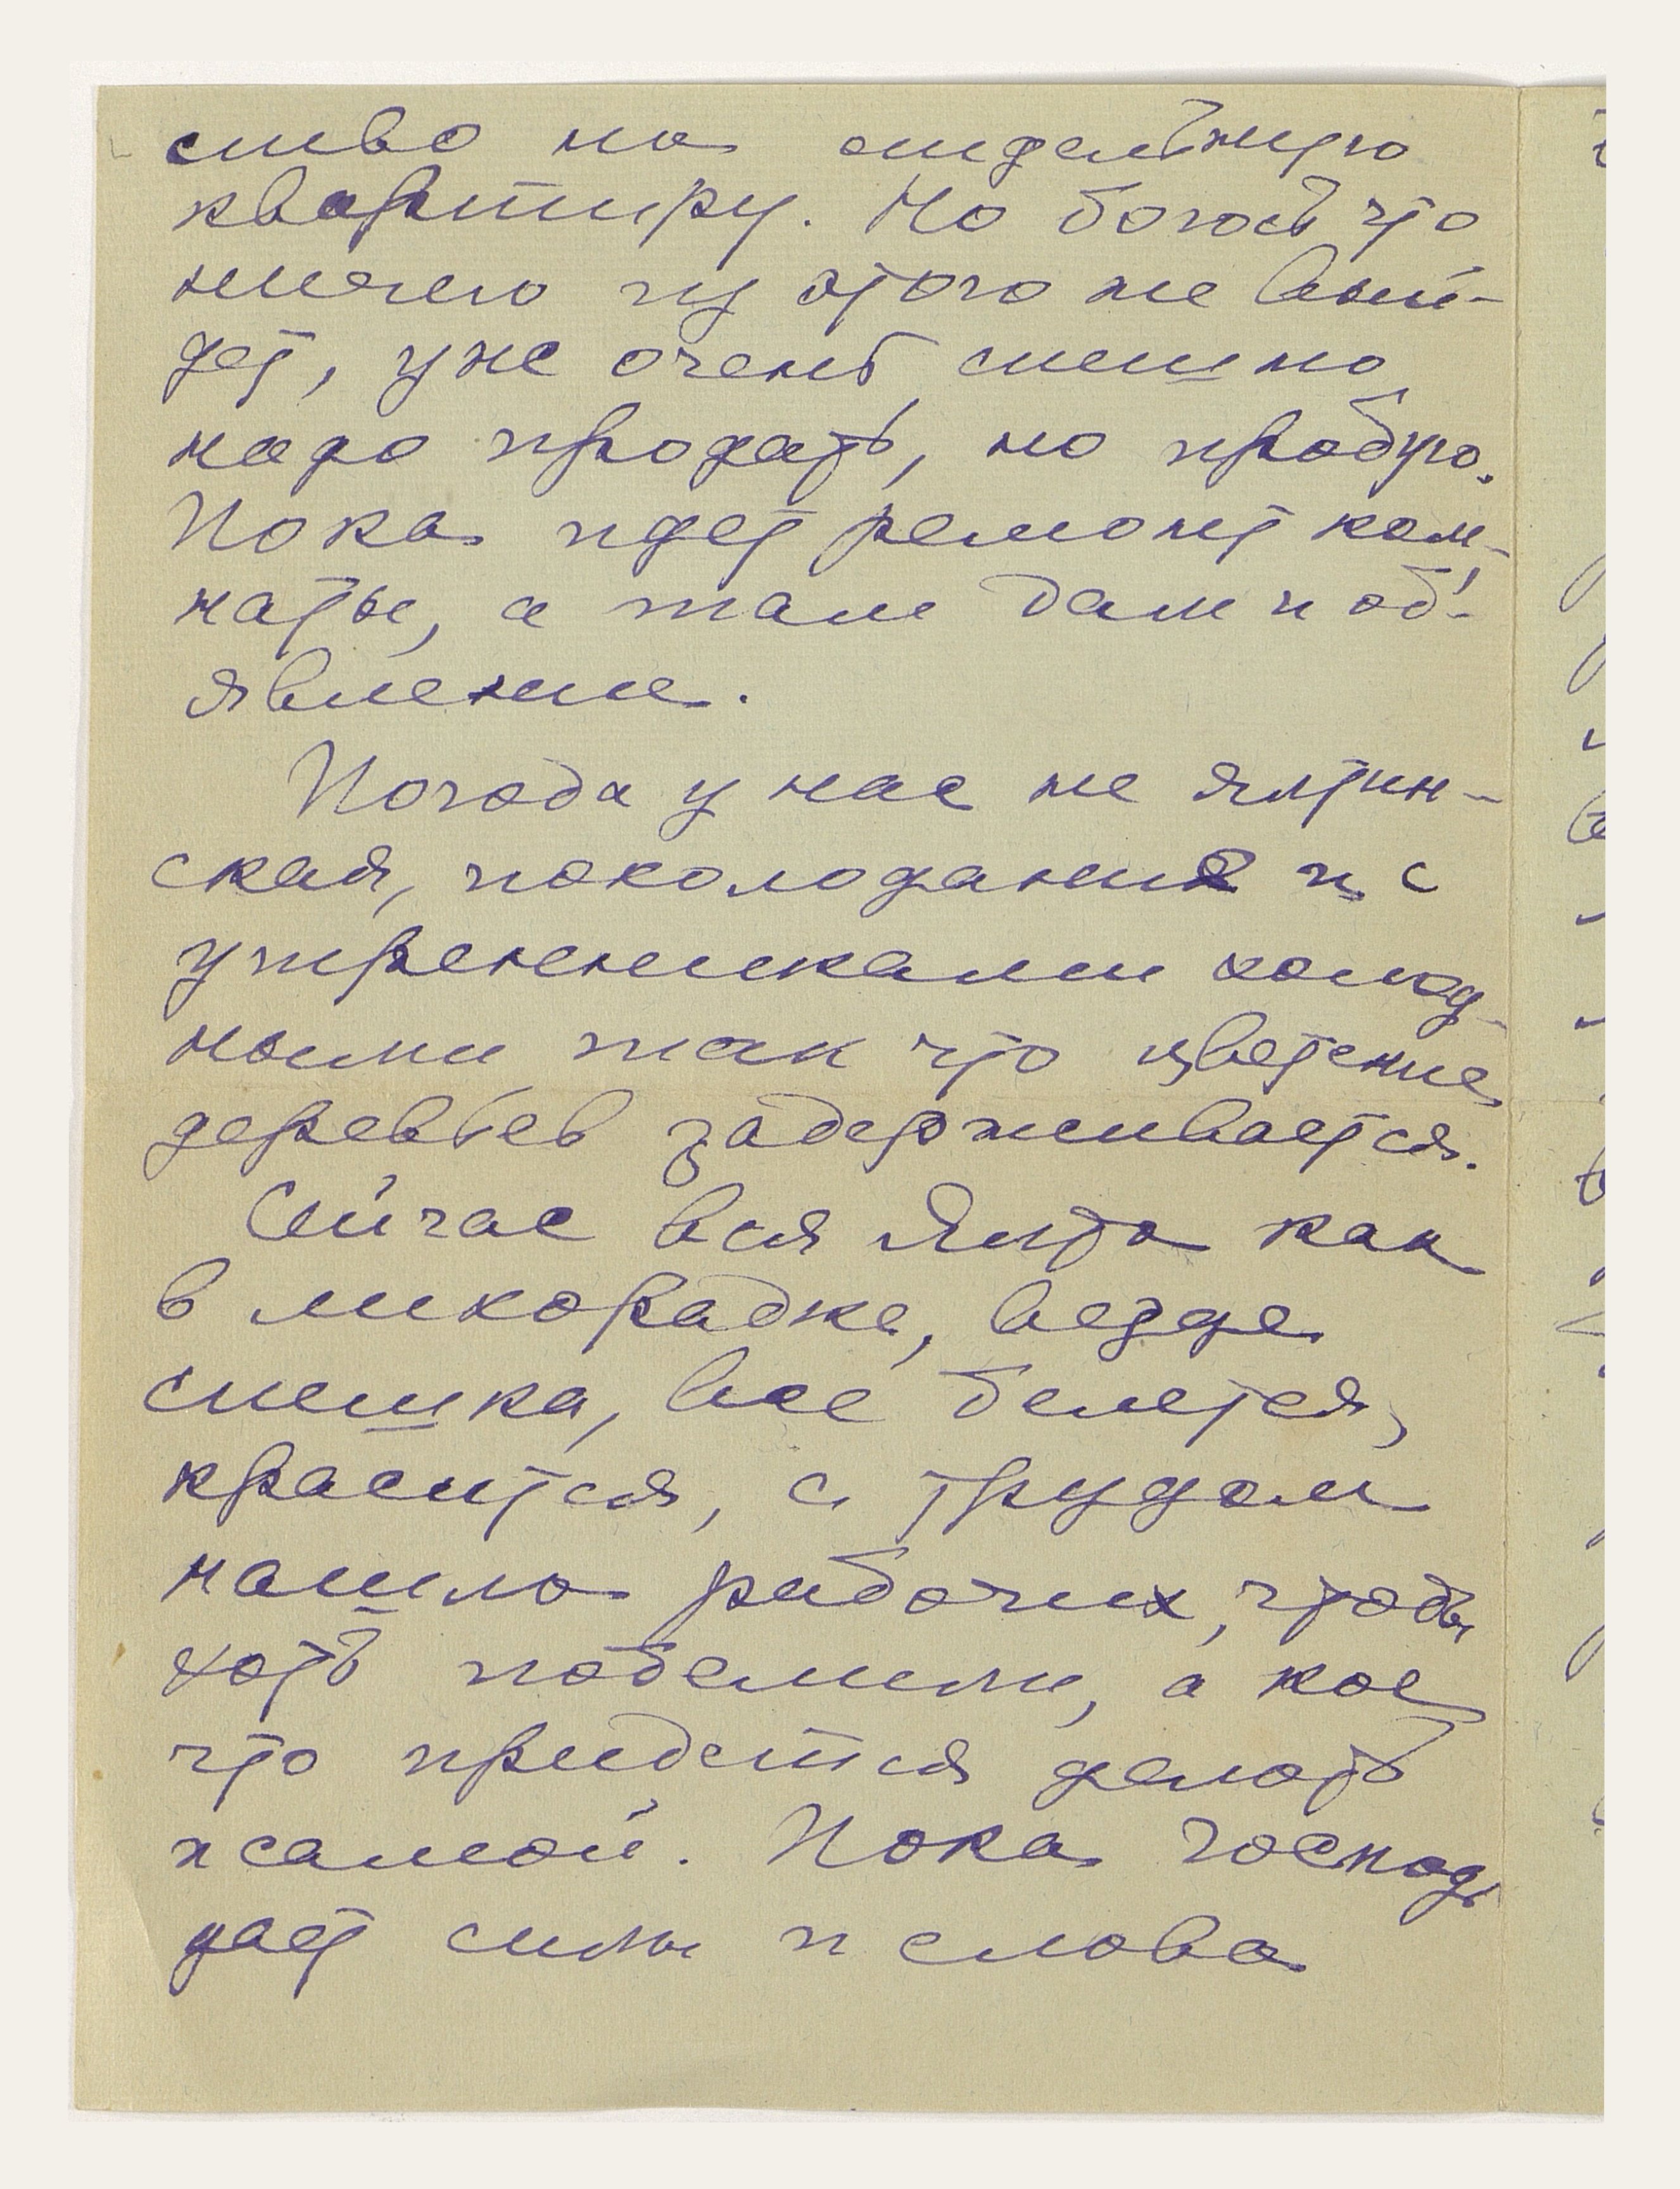 ство на отдельную
квартиру. Но боюсь что
ничего из этого не вый-
дет, уже очень смешно
надо продать, но пробую.
Пока идет ремонт ком-
наты, а там дам и об'-
явление.
Погода у нас не ялтин-
ская, похолодания и с
утренниками холод-
ными так что цветение
деревьев задерживается.
Сейчас вся Ялта как
в лихорадке, везде
спешка, все белется,
красится, с трудом
нашла рабочих, чтобы
хоть побелили, а кое
что придется делать
и самой. Пока Господь
дает силы и слава